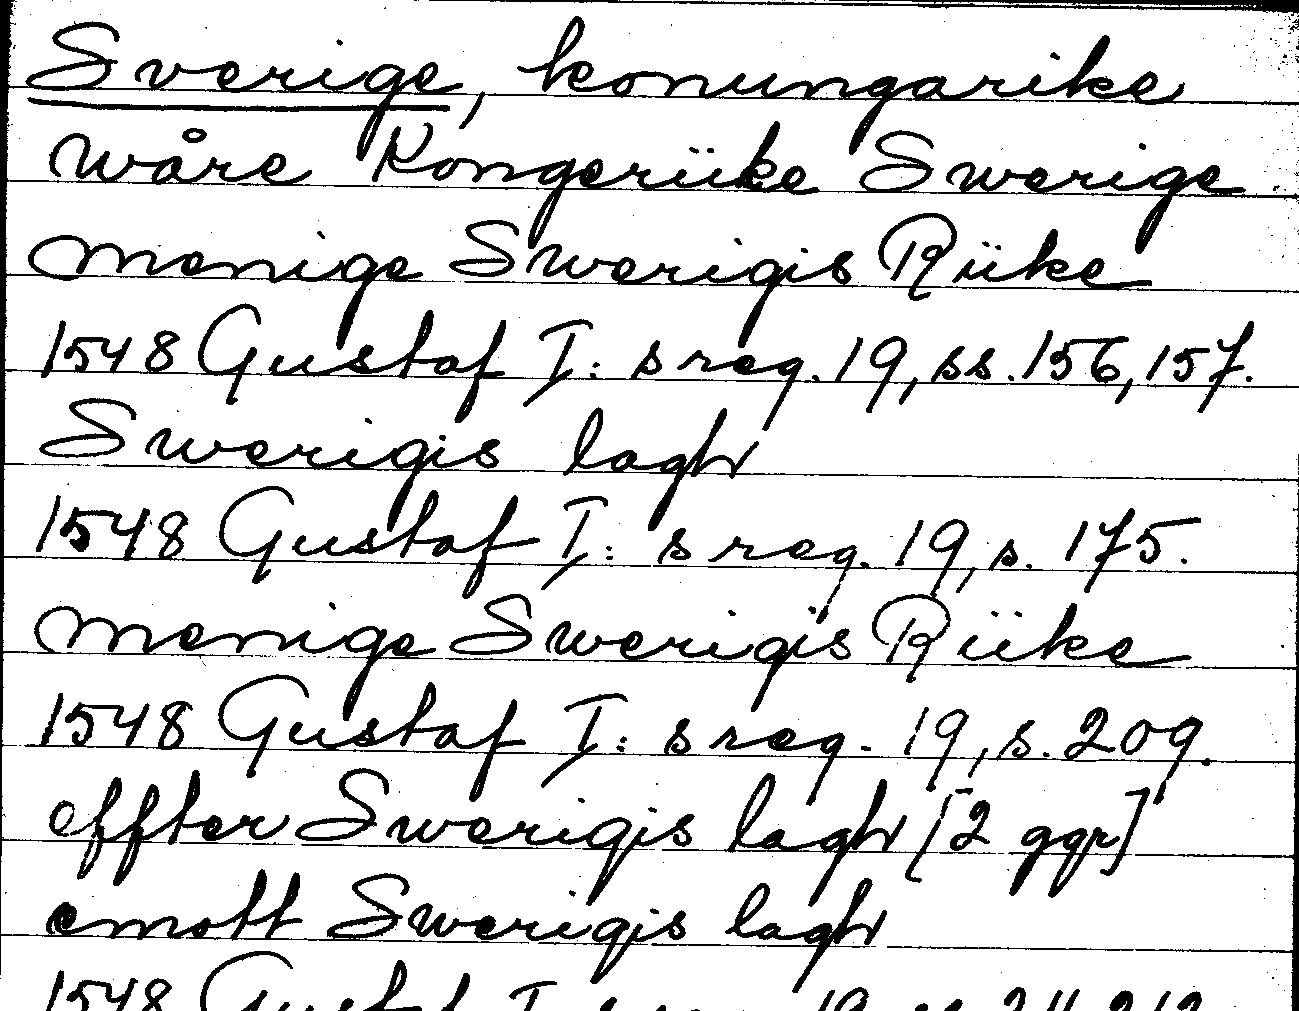 Sverige, konungarike
wåre Kongeriike Swerige
menige Swerigis Riike
1548 Gustaf I: s reg. 19, ss. 156, 157.
Swerigis lagh
1548 Gustaf I: s reg. 19, s. 175.
menige Swerigis Riike
1548 Gustaf I: s reg. 19, s. 209.
effter Swerigis lagh [2 ggr]
emott Swerigis lagh
1548 Gustaf I: s reg. 19, ss. 211, 212